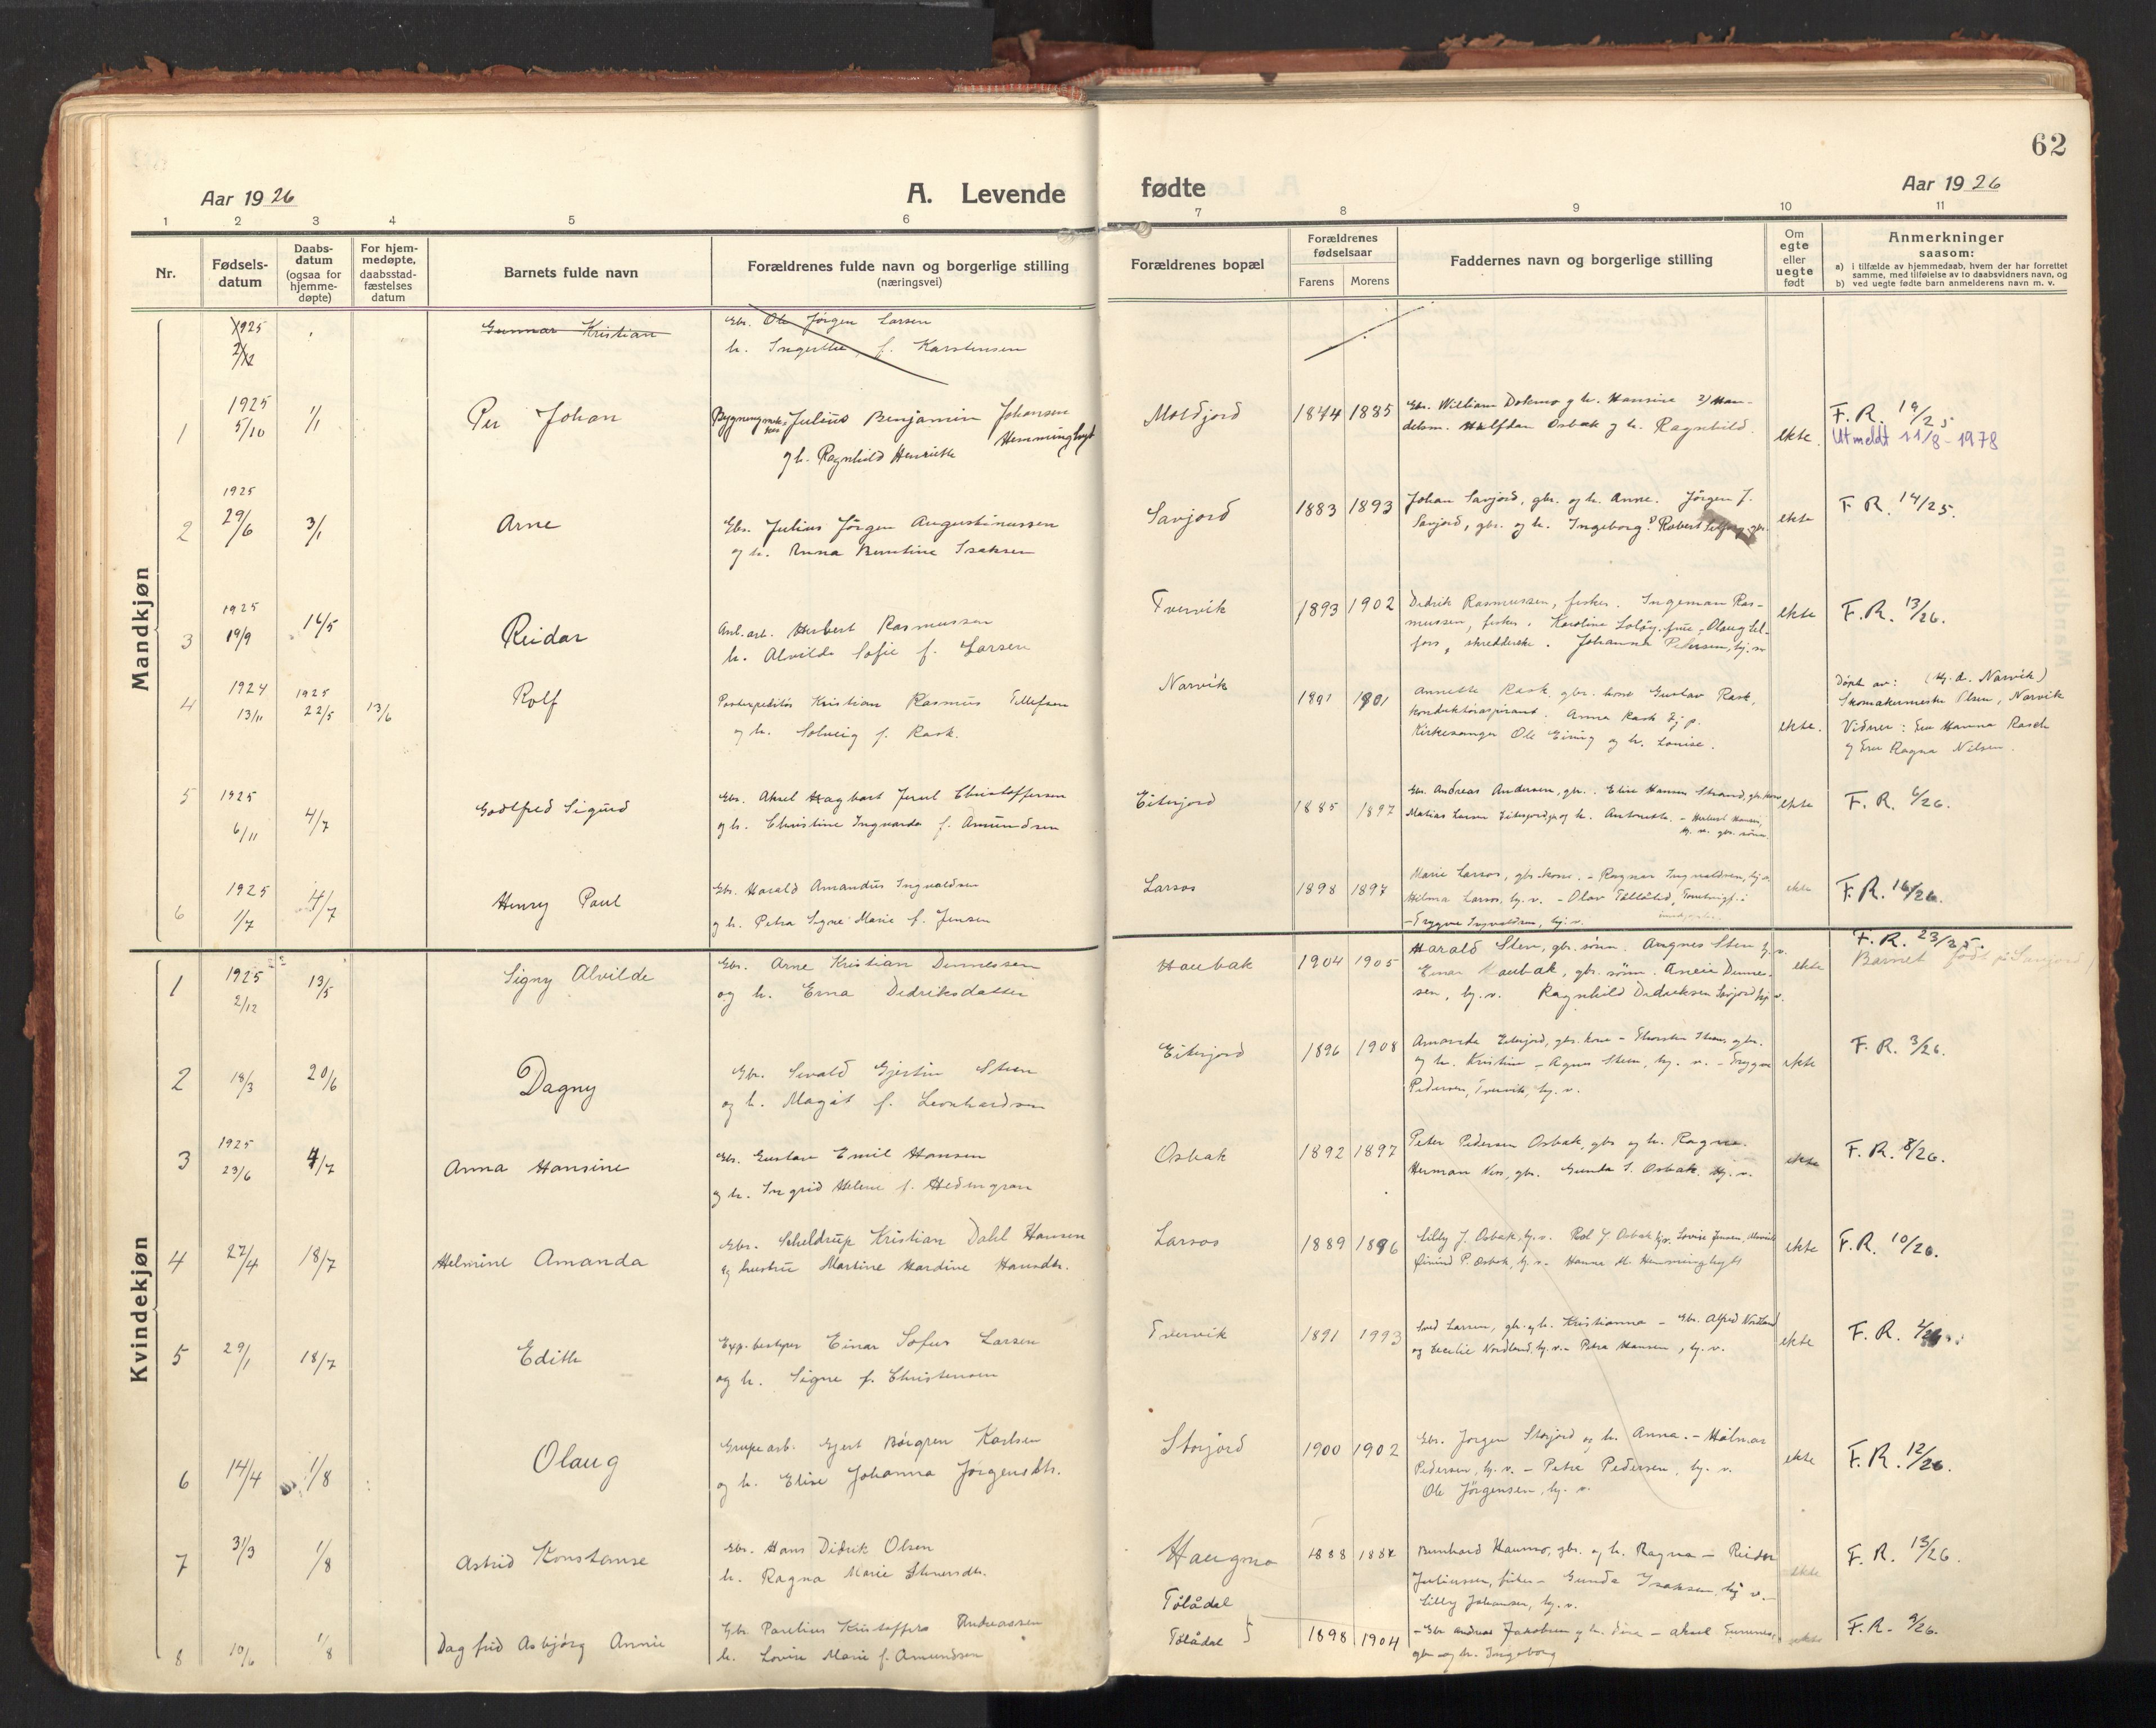 62
Aar 1926
A. Levende
fødte
Aar 1926
1 2 3 4 5 6 7 8 9 10 11
Nr.
Fødsels-
datum
Daabs-
datum
(ogsaa for
hjemme-
døpte)
For hjem-
medøpte,
daabsstad-
fæstelses
datum
Barnets fulde navn
Forældrenes fulde navn og borgerlige stilling
(næringsvei)
Forældrenes bopæl
Forældrenes
fødselsaar
Farens Morens
Faddernes navn og borgerlige stilling
Om
egte
eller
uegte
født
Anmerkninger
saasom:
a) i tilfælde av hjemmedaab, hvem der har forrettet
samme, med tilføielse av to daabsvidners navn, og
b) ved uegte fødte barn anmelderens navn m. v.
Mandkjøn
1925
2/12
Gunnar Kristian
Gbr. Ole Jörgen Larsen
h. f. Karstensen
1
1925
5/10
1/1
Per Johan
Julius Benjamin Johansen
og h. Ragnhild Henriette Hemminghyt
Moldjord
1874 1885
Gbr. William Dokmo og h. Hansine 2) Han-
delsm. Halfdan Osbak og h. Ragnhild.
ekte.
F. R. 19/25
Utmeldt 11/8-1978
2
1925
29/6
3/1
Arne
Gbr. Julius Jörgen Augustinussen
og h. Anna Berntine Isaksen
Savjord
1883 1893
Johan Savjord, gbr. og h. Anne. Jörgen J.
Savjord, gbr. og h. Ingeborg. Robert
ekte
F. R. 14/25.
3
1925
19/9
16/5
Reidar
Anl. arb. Herbert Rasmussen
h. Alvilde Sofie f. Larsen
Tvervik
1893 1902
Didrik Rasmussen, fisker. Ingeman Ras-
mussen, fisker. Karoline
fors, skredderske. Johanna Petersen, hj. v
ekte
F. R. 13/26.
4
1924
13/11
1925
22/5
13/6
Rolf
Postexpeditör Kristian Rasmus Tellefsen
og h. Solveig f. Rask.
Narvik
1891 1901
Annette Rask, gbr. kone Gustav Rask,
konduktöraspirant. Anna Rask hj p.
Kirkesanger Ole Eining og h. Louise.
ekte.
Döpt av: (Narvik)
Skomakermester Olsen, Narvik
Vidner: Fru Hanna Rasch
og Fru Ragna Nilsen.
5
1925
6/11
4/7
Godtfred Sigurd
Gbr. Aksel Hagbart Juul Christoffersen
og h. Christine Ingvarda f. Amundsen
Eiterjord
1885 1897
Gbr. Andreas Andersen, gbr. Elise Hansen Strand, gbr. kone
Matias Larsen Eiterjord, gbr og h. Antonette. - Herbert Hansen,
ekte
F. R. 6/26.
6
1925
1/7
4/7
Henry Paul
Gbr. Harald Amandus Ingvaldsen
og h. Petra Signe Marie f. Jensen
Larsos
1898 1897
Marie Larsos, gbr. kone. - Ragnar Ingvaldsen, hj. v.
Hilma Larsos, hj. v. - Olav
- Trygve Ingvaldsen, hj. v.
ekte
F. R. 16/26.
Kvindekjøn
1
1925
2/12
13/5
Signy Alvilde
Gbr. Arne Kristian Dinnessen
og h. Erna Didriksdatter
Haubak
1904 1905
Harald Sten, gbr. sönn. Angnes Sten hj. v.
Einar Haubak, gbr. sönn. Aneie Dinnes-
sen, hj. v. Ragnhild Didriksen Savjord hj v.
ekte
F. R. 23/25.
Barnet född på Savjord
2
18/3
20/6
Dagny
Gbr. Sivald Gjertin Steen
og h. Magåt f. Leonhardsen
Eiterjord
1896 1908
Amanda Eiterjord, gbr. kone - Thorstein Steen gbr.
og h. Kristine - Agnes Steen, hj. v. - Trygve
Pedersen, Tvervik, hj. v.
ekte
F. R. 3/26.
3
1925
23/6
4/7
Anna Hansine
Gbr. Gustav Emil Hansen
og h. Ingrid Helene f. Hedengran
Osbak
1892 1897
Peter Pedersen Osbak, gbr og h. Ragna.
Herman Nes, gbr. Gunda S. Osbak. hj. v.
ekte
F. R. 8/26.
4
27/4
18/7
Helmine Amanda
Gbr. Scheldrup Kristian Dahl Hansen
og hustru Martine Hardine Hansdtr.
Larsos
1889 1896
Lilly J. Osbak, hj. v. Rol J Osbak hj. v. Lovise Jensen,
Eivind P. Osbak, hj. v. - Hanna M. Hemminghyt
ekte
F. R. 10/26.
5
29/1
18/7
Edith
Exp. bestyrer Einar Sofus Larsen
og h. Signe f. Christensen
Tvervik
1891 1993
Larsen, gbr. og h. Kristianna - Gbr. Alfred Nordland
og Cecilie Nordland, hj. v. - Petra Hansen, hj. v.
ekte
F. R.
6
14/4
1/8
Olaug
Grupearb. Gjert Börgren Karlsen
og h. Elise Johanna Jörgensdtr.
Storjord
1900 1902
Gbr. Jörgen Storjord og h. Anna. - Hilmar
Pedersen, hj. v. - Petra Pedersen, hj. v.
Ole Jörgensen, hj. v.
ekte
F. R. 12/26.
7
31/3
1/8
Astrid Konstanse
Gbr. Hans Didrik Olsen
h. Ragna Marie
Haugmo
Tölådal
1888 1882
Bernhard Haumo, gbr. og h. Ragna - Reidar
Juliussen, fisker - Gunda Isaksen, hj v. -
Lilly Johansen, hj. v.
ekte
F. R. 13/26.
8
10/6
1/8
Dagfrid Asbjörg Annie
Gbr. Parelius Kristoffers Andreassen
h. Lovise Marie f. Amundsen
Tölådal
1898 1904
- Gbr Andreas Jakobsen og h. Dina - Aksel
gbr og h. Ingeborg
ekte
F. R. 9/26.